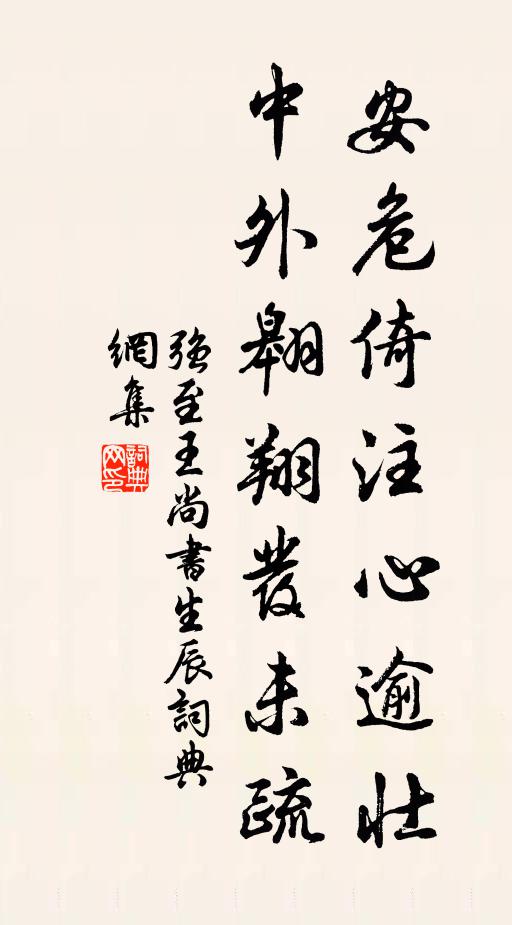 安危倚注心逾壮
中外翱翔发未疏
强至王尚书生辰词典
網集
詞典網印